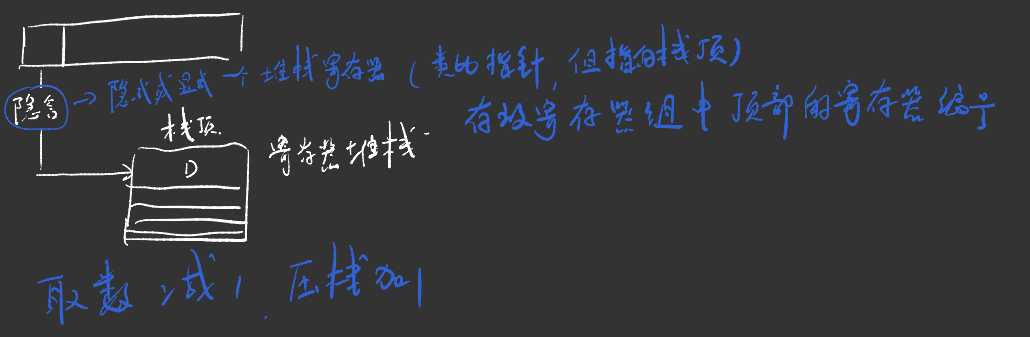 隐含 → 隐式或显式一个堆栈寄存器（类比指针，但指向栈顶）
存放寄存器组中顶部的寄存器编号
栈顶
D
寄存器堆栈
取数减1，压栈加1